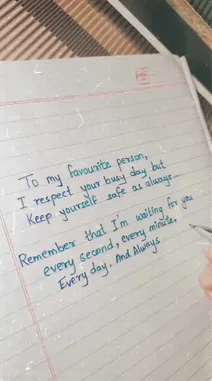 To my favourite person,
I respect your busy day but
Keep yourself safe as always....
Remember that I'm waiting for you
every second, every minute,
Every day. And Always